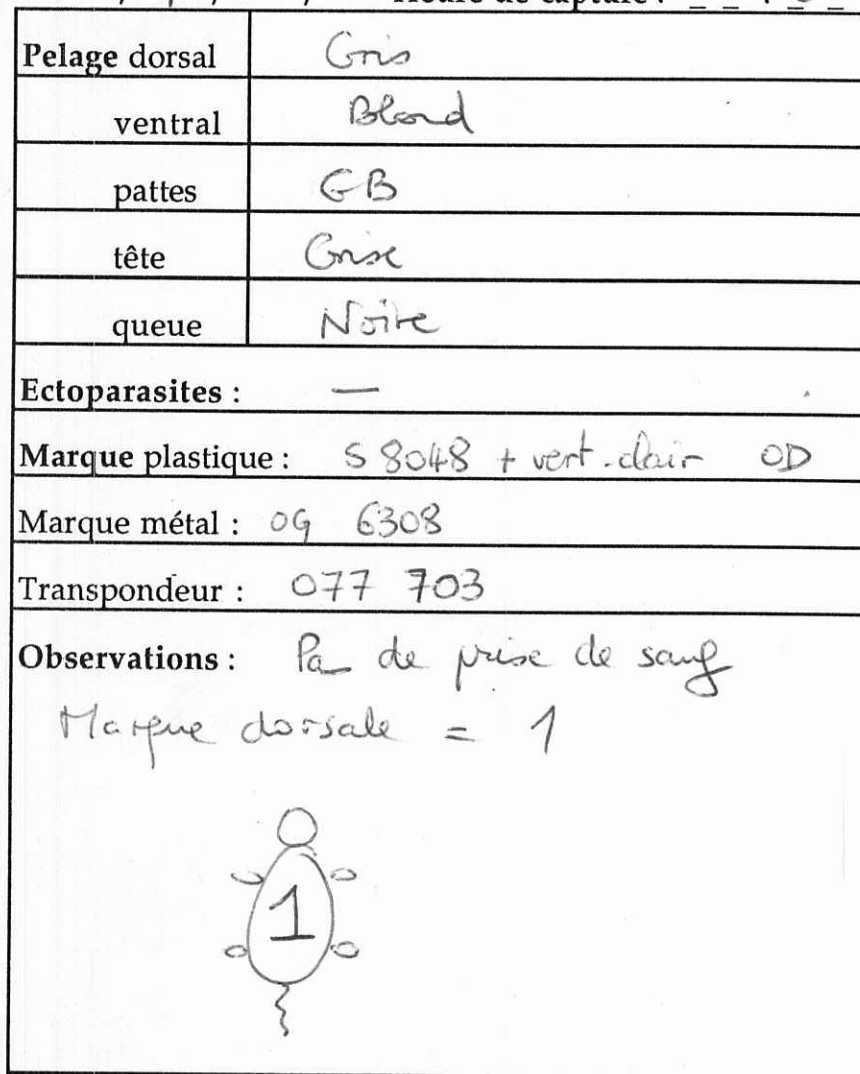 Heure de capture :
Pelage dorsal Gris
ventral Blond
pattes GB
tête Grise
queue Noire
Ectoparasites : —
Marque plastique : S 8048 + vert.clair OD
Marque métal : OG 6308
Transpondeur : 077 703
Observations : Pas de prise de sang
Marque dorsale = 1
1